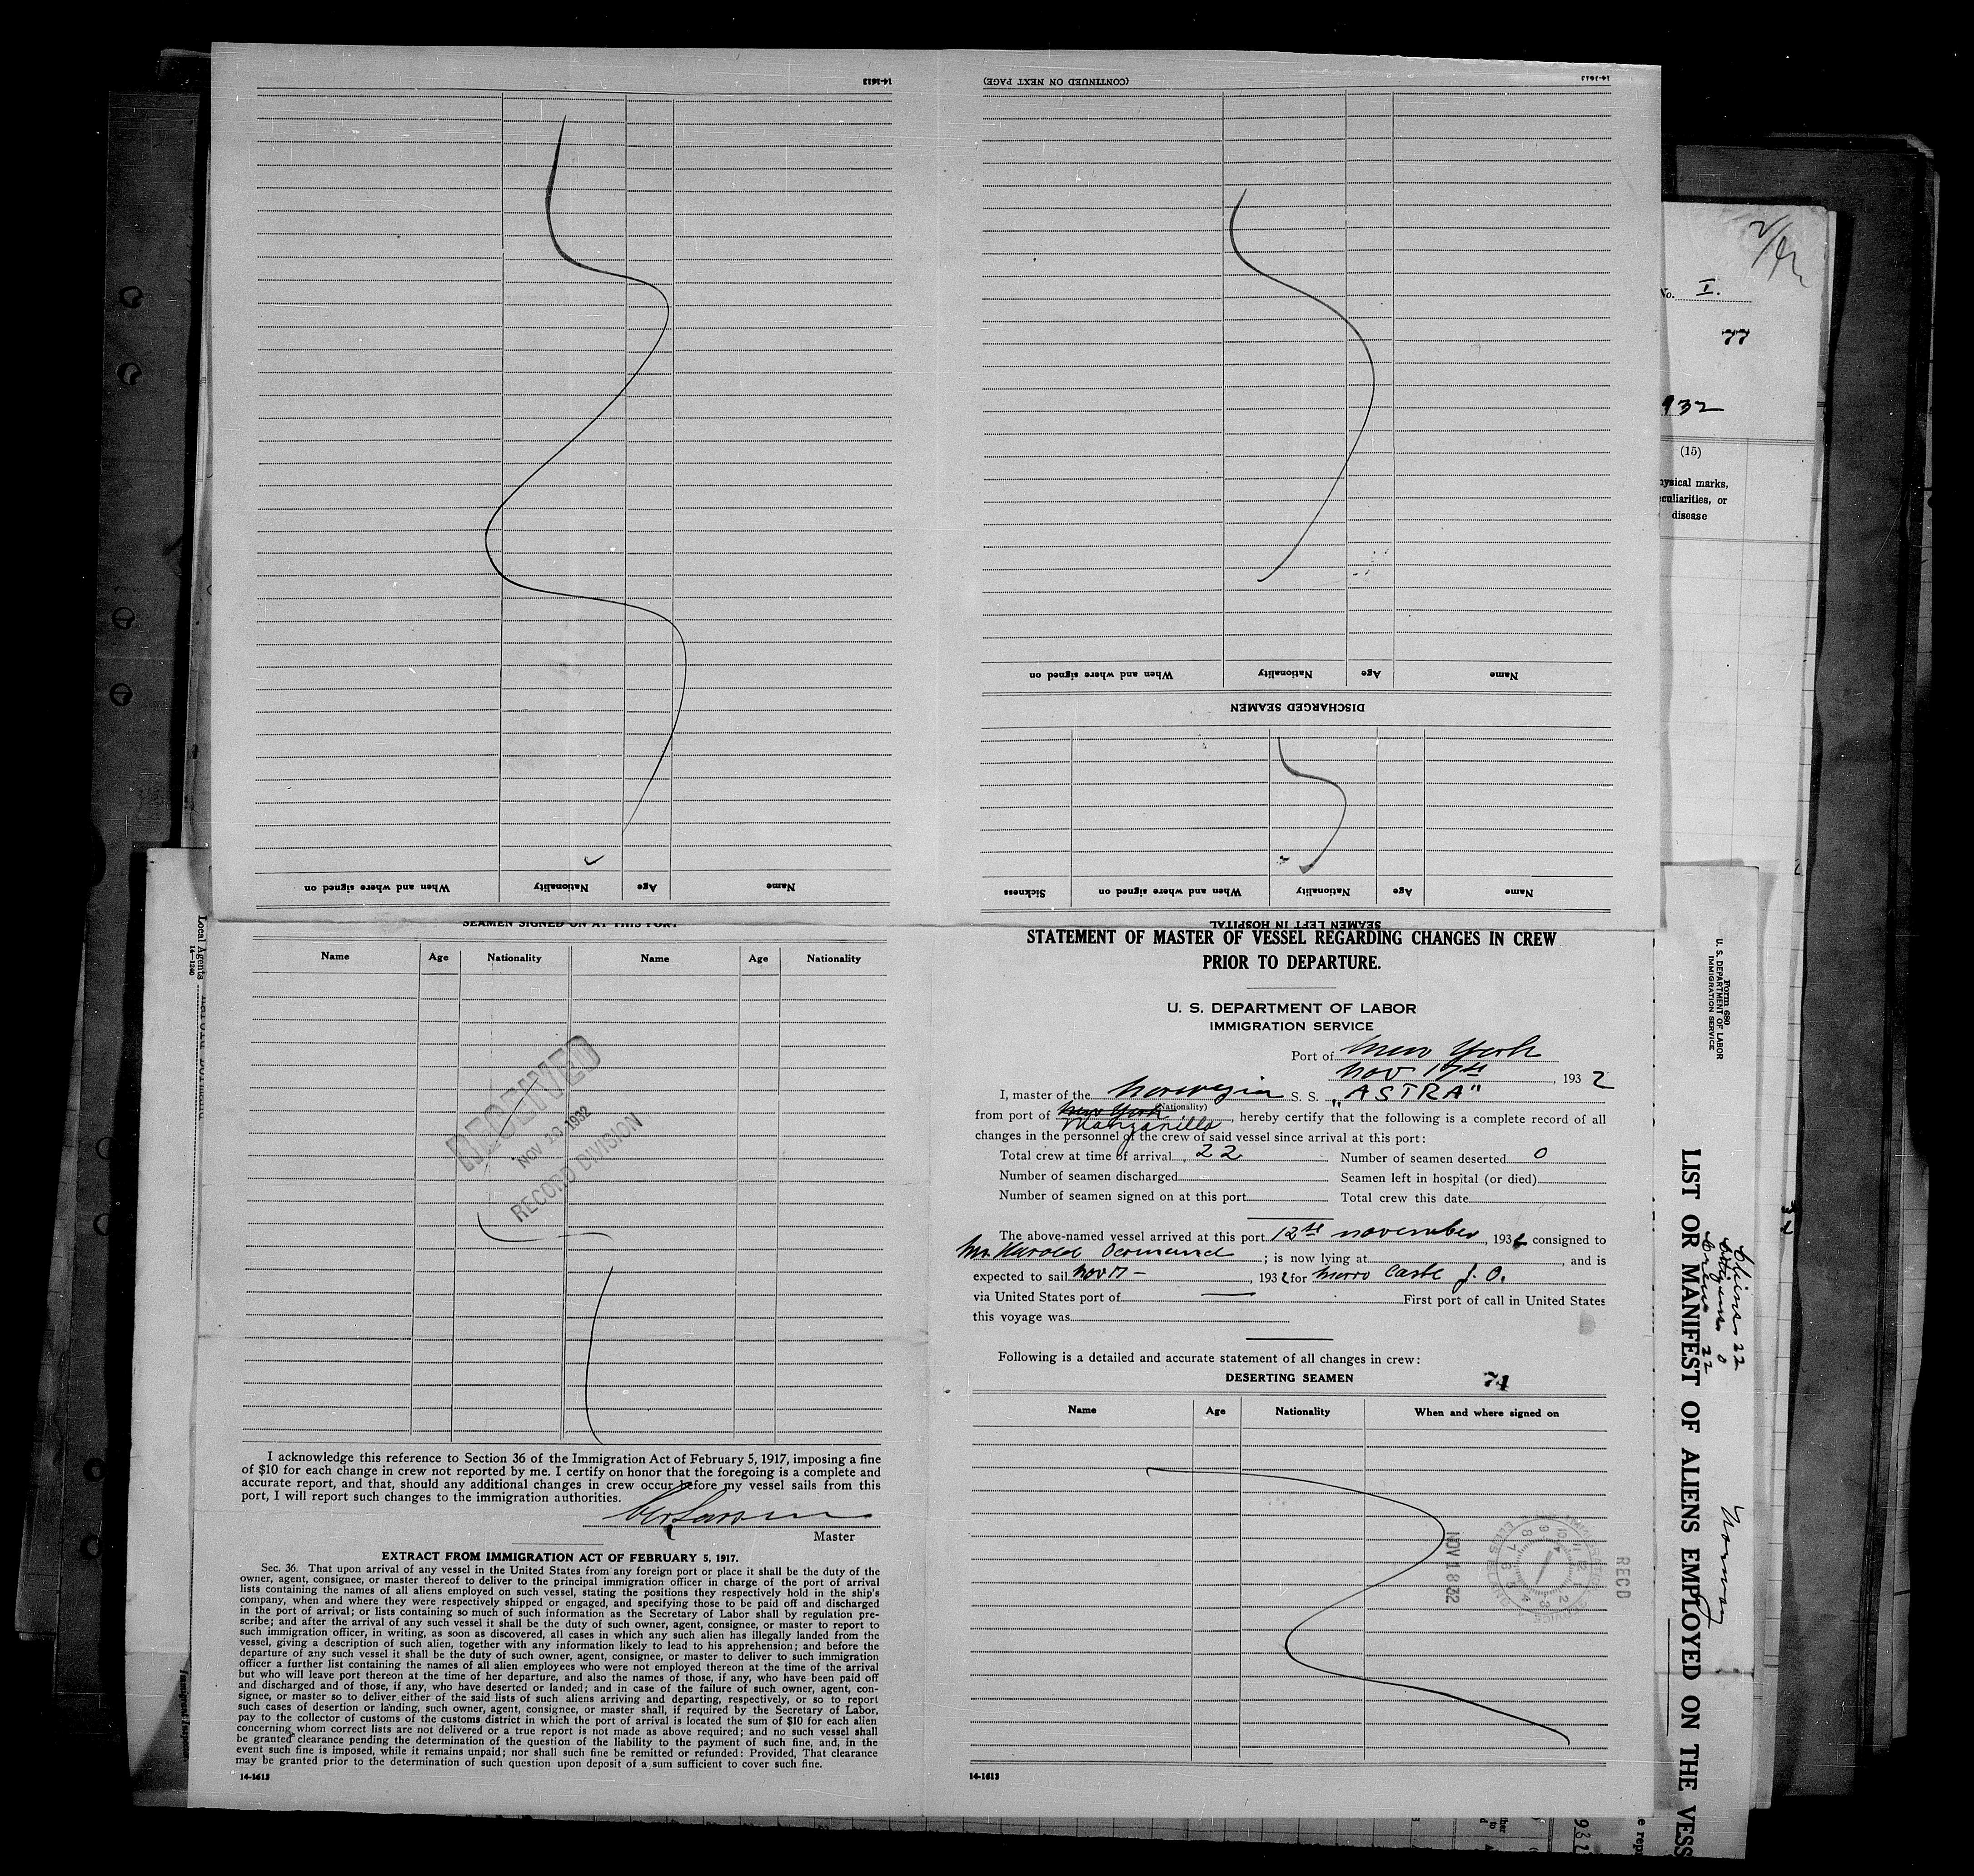 14-1613
(CONTINUED ON NEXT PAGE)
14-1613
When and where signed on Nationality Age Name
DISCHARGED SEAMEN
When and where signed on Nationality Age Name
Sickness When and where signed on Nationality Age Name
SEAMEN LEFT IN HOSPITAL
SEAMEN SIGNED ON AT THIS PORT
Name Age Nationality Name Age Nationality
RECEIVED
NOV 1932
RECORD DIVISION
I acknowledge this reference to Section 36 of the Immigration Act of February 5, 1917, imposing a fine
of $10 for each change in crew not reported by me. I certify on honor that the foregoing is a complete and
accurate report, and that, should any additional changes in crew occur before my vessel sails from this
port, I will report such changes to the immigration authorities.
Master
EXTRACT FROM IMMIGRATION ACT OF FEBRUARY 5, 1917.
Sec. 36. That upon arrival of any vessel in the United States from any foreign port or place it shall be the duty of the
owner, agent, consignee, or master thereof to deliver to the principal immigration officer in charge of the port of arrival
lists containing the names of all aliens employed on such vessel, stating the positions they respectively hold in the ship's
company, when and where they were respectively shipped or engaged, and specifying those to be paid off and discharged
in the port of arrival; or lists containing so much of such information as the Secretary of Labor shall by regulation pre-
scribe; and after the arrival of any such vessel it shall be the duty of such owner, agent, consignee, or master to report to
such immigration officer, in writing, as soon as discovered, all cases in which any such alien has illegally landed from the
vessel, giving a description of such alien, together with any information likely to lead to his apprehension; and before the
departure of any such vessel it shall be the duty of such owner, agent, consignee, or master to deliver to such immigration
officer a further list containing the names of all alien employees who were not employed thereon at the time of the arrival
but who will leave port thereon at the time of her departure, and also the names of those, if any, who have been paid off
and discharged and of those, if any, who have deserted or landed; and in case of the failure of such owner, agent, con-
signee, or master so to deliver either of the said lists of such aliens arriving and departing, respectively, or so to report
such cases of desertion or landing, such owner, agent, consignee, or master shall, if required by the Secretary of Labor,
pay to the collector of customs of the customs district in which the port of arrival is located the sum of $10 for each alien
concerning whom correct lists are not delivered or a true report is not made as above required; and no such vessel shall
be granted clearance pending the determination of the question of the liability to the payment of such fine, and, in the
event such fine is imposed, while it remains unpaid; nor shall such fine be remitted or refunded: Provided, That clearance
may be granted prior to the determination of such question upon deposit of a sum sufficient to cover such fine.
14-1613
STATEMENT OF MASTER OF VESSEL REGARDING CHANGES IN CREW
PRIOR TO DEPARTURE.
U. S. DEPARTMENT OF LABOR
IMMIGRATION SERVICE
Port of New York
Nov 17th, 1932
I, master of the Norwegian S. S. "ASTRA"
(Nationality)
from port of New York Manzanillo, hereby certify that the following is a complete record of all
changes in the personnel of the crew of said vessel since arrival at this port:
Total crew at time of arrival 22 Number of seamen deserted 0
Number of seamen discharged Seamen left in hospital (or died)
Number of seamen signed on at this port Total crew this date
The above-named vessel arrived at this port 12th november, 1932 consigned to
Mr Harold ; is now lying at , and is
expected to sail Nov 17 - , 1932 for
via United States port of First port of call in United States
this voyage was
Following is a detailed and accurate statement of all changes in crew:
DESERTING SEAMEN
71
Name Age Nationality When and where signed on
NOV 18 32
RECD
14-1613
No. I.
77
932
(15)
disease
Local Agents
14-1240
Form 680
U. S. DEPARTMENT OF LABOR
IMMIGRATION SERVICE
LIST OR MANIFEST OF ALIENS EMPLOYED ON THE VESS
Aliens 22
Citizens 0
Crew 22
Norway